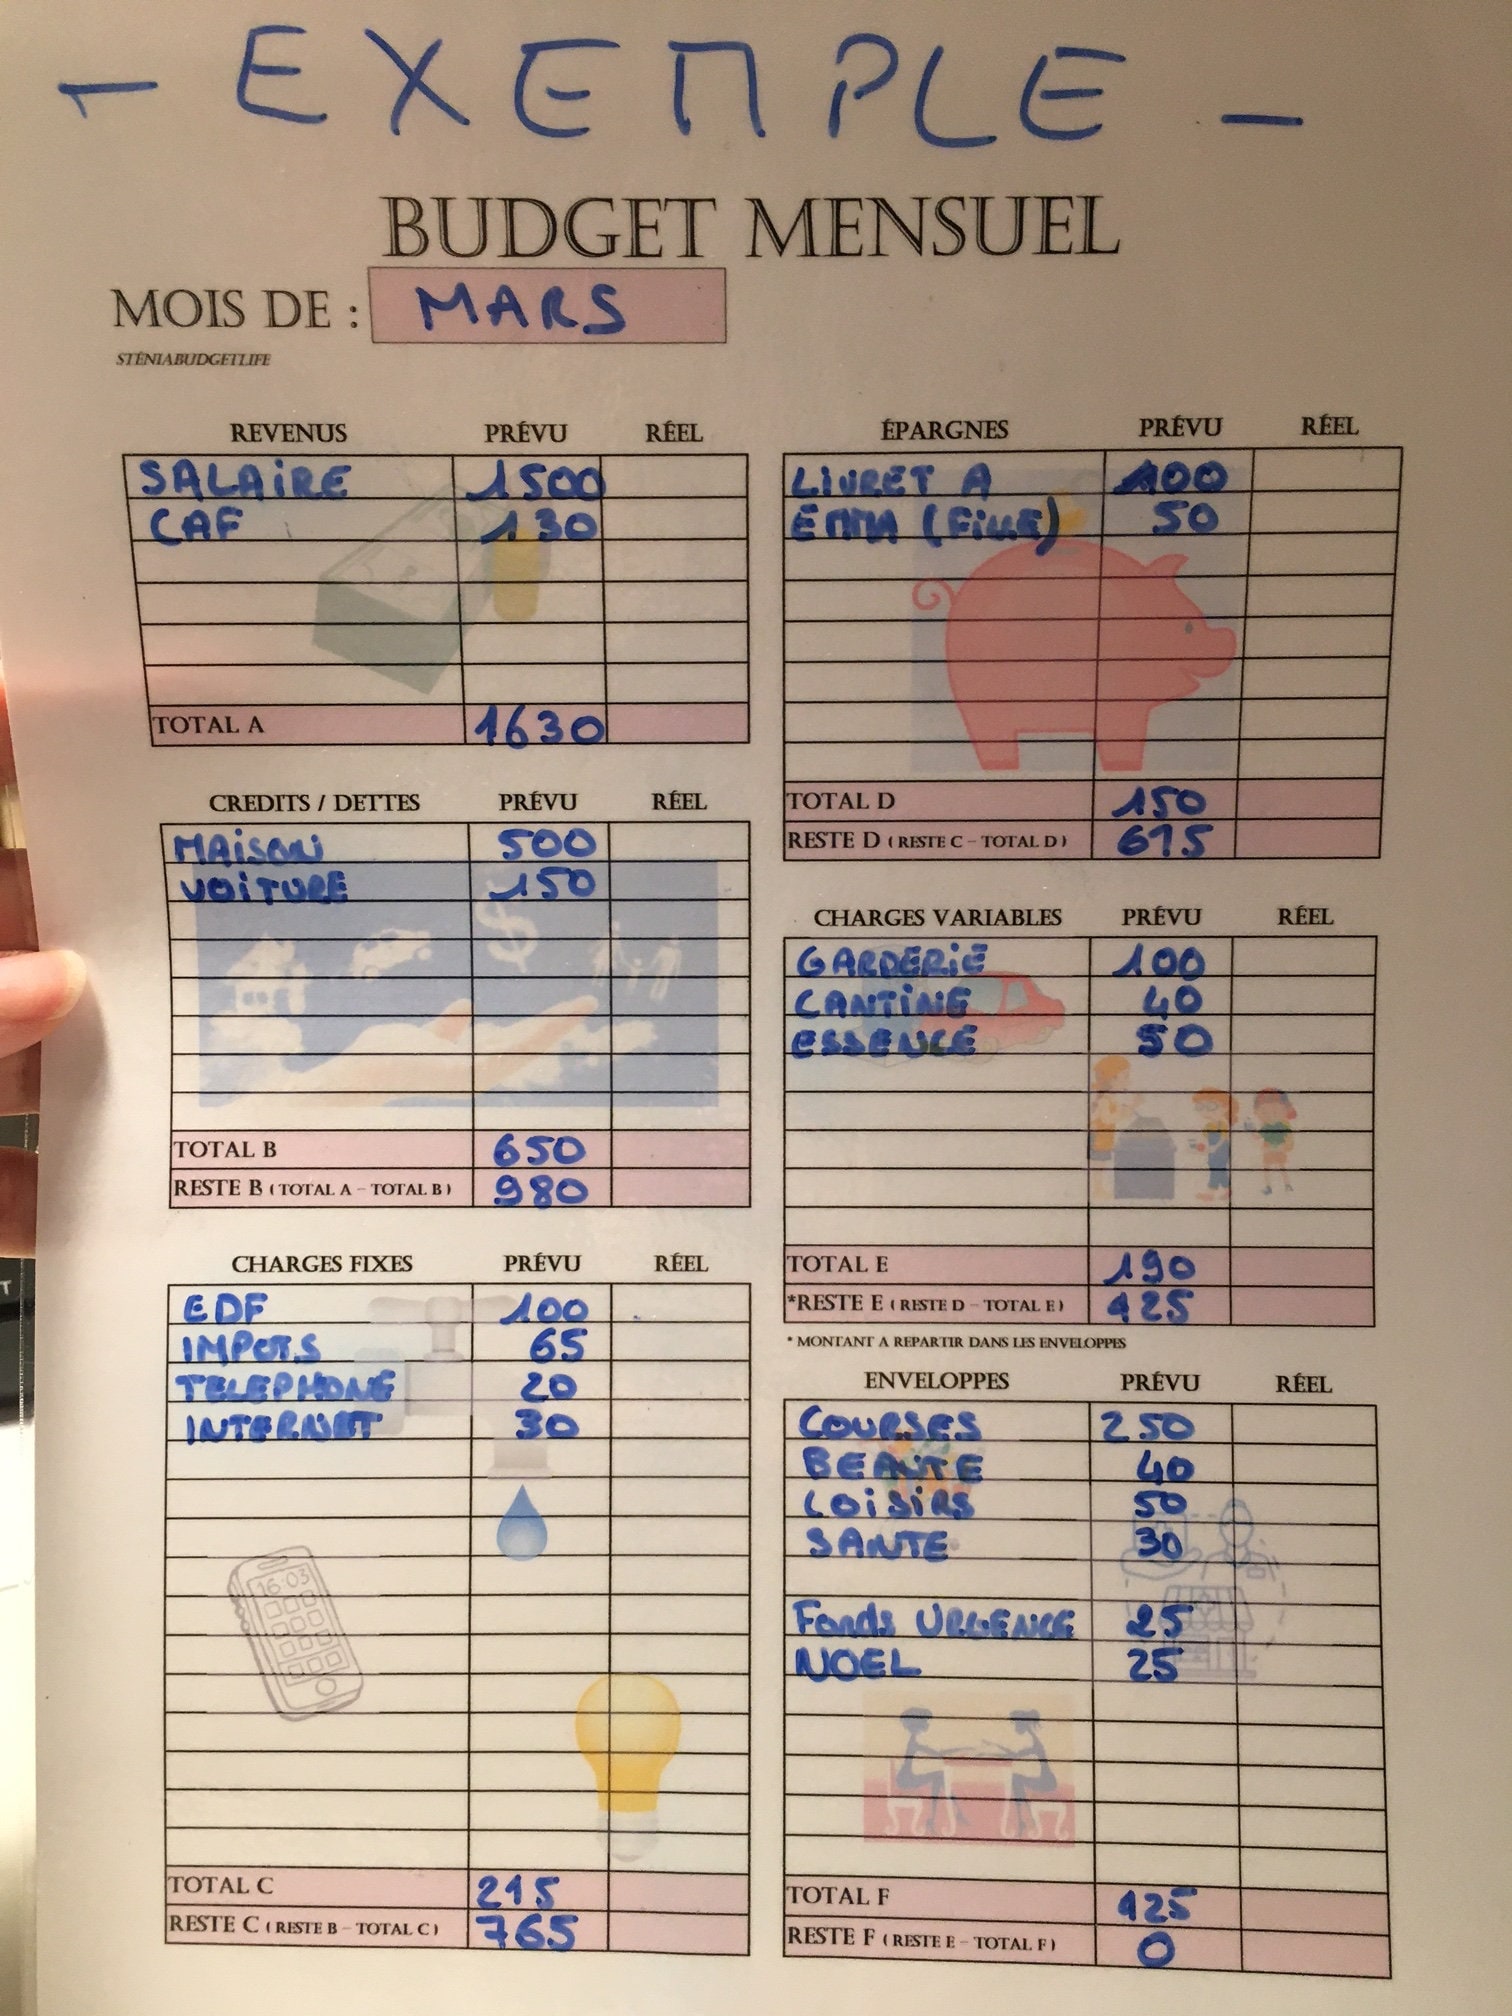 - EXEMPLE -
BUDGET MENSUEL
MOIS DE : MARS
STÉNIABUDGETLIFE
REVENUS PRÉVU RÉEL
SALAIRE 1500
CAF 130
TOTAL A 1630
CREDITS / DETTES PRÉVU RÉEL
MAISON 500
VOITURE 150
TOTAL B 650
RESTE B ( TOTAL A – TOTAL B ) 980
CHARGES FIXES PRÉVU RÉEL
EDF 100
IMPOTS 65
TELEPHONE 20
INTERNET 30
16:03
TOTAL C 215
RESTE C ( RESTE B – TOTAL C ) 765
ÉPARGNES PRÉVU RÉEL
LIVRET A 100
EMMA (FILLE) 50
TOTAL D 150
RESTE D ( RESTE C – TOTAL D ) 615
CHARGES VARIABLES PRÉVU RÉEL
GARDERIE 100
CANTINE 40
ESSENCE 50
TOTAL E 190
*RESTE E ( RESTE D – TOTAL E ) 425
* MONTANT A REPARTIR DANS LES ENVELOPPES
ENVELOPPES PRÉVU RÉEL
COURSES 250
BEAUTE 40
LOISIRS 50
SANTE 30
Fonds URGENCE 25
NOEL 25
TOTAL F 425
RESTE F ( RESTE E – TOTAL F ) 0